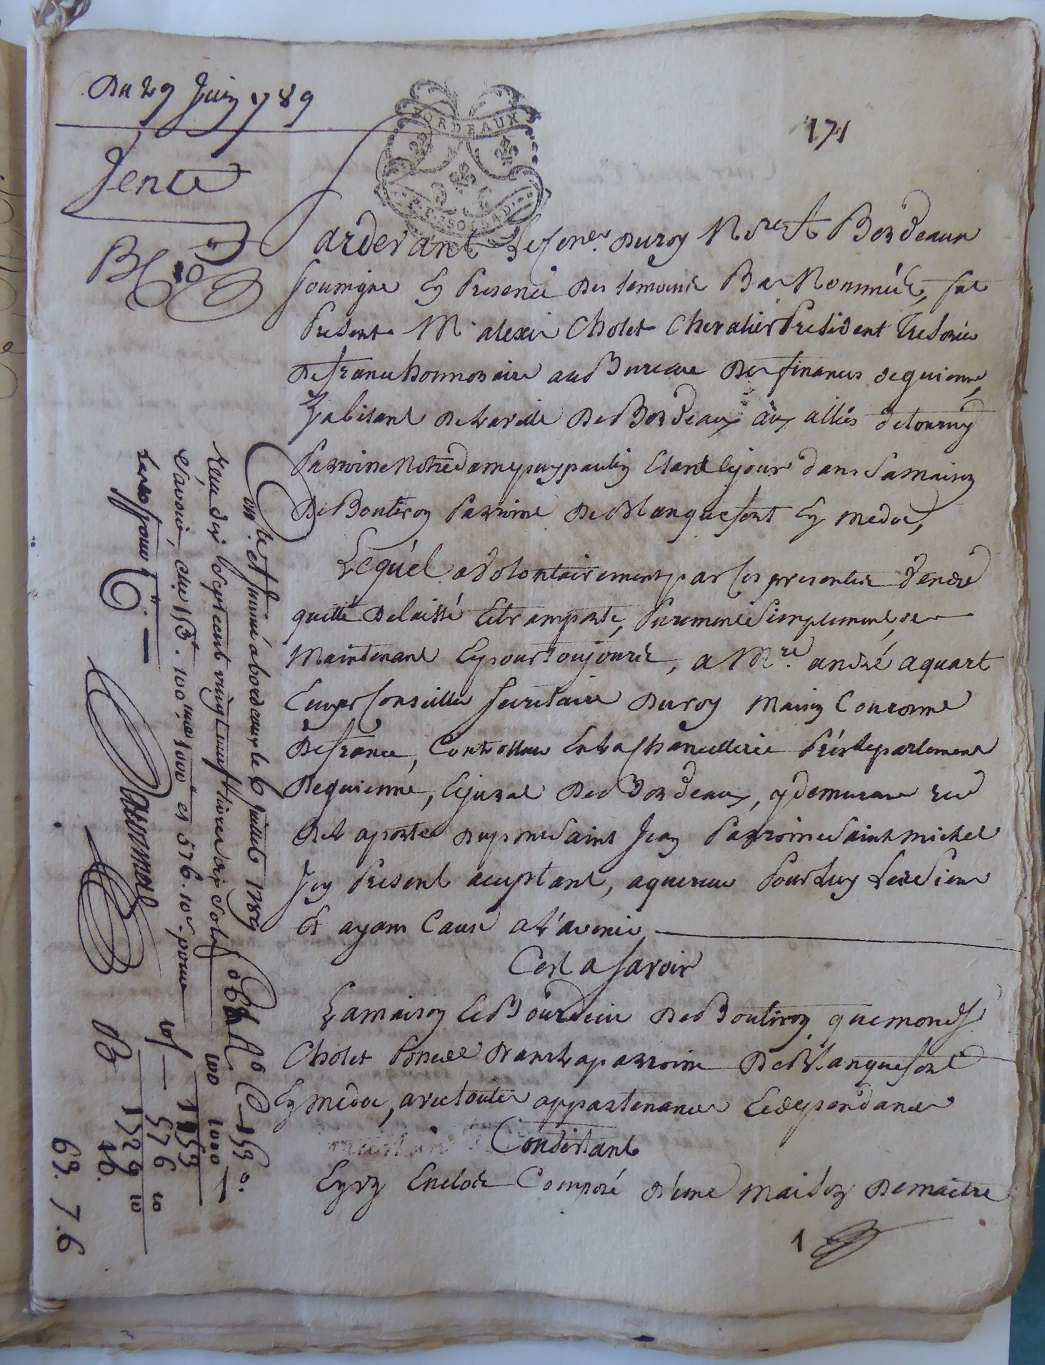 Du 29 Juin 1789
Vente
BORDEAUX
171
Pardevant Le Con.er Du roy No.re A Bordeaux
Soussigné En Presence Des temoins Bas Nommés, fut
Present M.r alexis Cholet Chevalier President Tresorier
De france honnoraire au Bureau Des finances de guienne,
habitant De la ville De Bordeaux aux allées de tourny
Parroisse Notre dame puypaulin Etant Ce jour dans Sa Maison
De Boutiron Parroisse De Blanquefort En Medoc,
Lequel a Volontairement par Ces presentes Vendu
quitté Delaissé Et transporté, Purement & Simplement, de
Maintenant Et pour toujours, a M.re andré acquart
Ecuyer Conseiller Secretaire Du roy Maison Couronne
De france, Controlleur En La Chancellerie Près Le parlement
De guienne, Et jurat De Bordeaux, y demeurant rue
De La porte Du pont Saint Jean Parroisse Saint michel
Icy Present acceptant, aquereur Pour Luy Les Siens
Et ayant Cause a L'avenir
C'est a Savoir
La maison Et Bourdieu De Boutiron que mond. S.r
Cholet Possede Dans La parroisse De Blanquefort
En Medoc, avec toutes appartenances Et dependances
Consistant
En un Enclos Composé D'une Maison De maitre
1
Con.lé et Insinué a bordeaux le 6 juillet 1789
reçu dix sept cent vingt neuf livres dix sols
Savoir, C.le 153.# 100.me 1000# et 576.# 10.s pour
Les 8s pour #
153
100 1000
1153
8s 576 10
1729 10
63. 7. 6